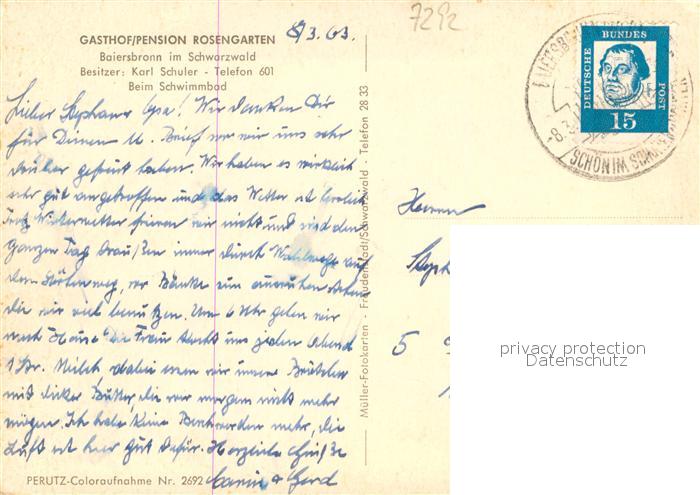 GASTHOF/PENSION ROSENGARTEN
Baiersbronn im Schwarzwald
Besitzer: Karl Schuler - Telefon 601
Beim Schwimmbad
8/3.63.
7292
Lieber Opa! Wir danken Dir
für Deinen lb. Brief, wir uns sehr
darüber gefreut haben. Wir haben es wirklich
sehr gut angetroffen und das Wetter ist herrlich
Trotz Winterwetter frieren wir nicht und sind den
ganzen Tag draußen immer durch Waldwege auf
dem Höhenweg, wo Bänke zum ausruhen stehen
die wir viel benutzen. Um 6 Uhr gehen wir
nach Hause. Die Frau stellt uns jeden Abend
1 Ltr. Milch, dabei essen wir unsere Brötchen
mit dicker Butter, die wir morgens nicht mehr
mögen. Ich habe keine Beschwerden mehr, die
Luft ist hier gut dafür. Herzliche Grüße
Carin & Gerd
PERUTZ-Coloraufnahme Nr. 2692
Müller-Fotokarten - Freudenstadt/Schwarzwald - Telefon 28 33
DEUTSCHE BUNDES POST
15
-8.3.
Herrn
Steph
5
privacy protection
Datenschutz